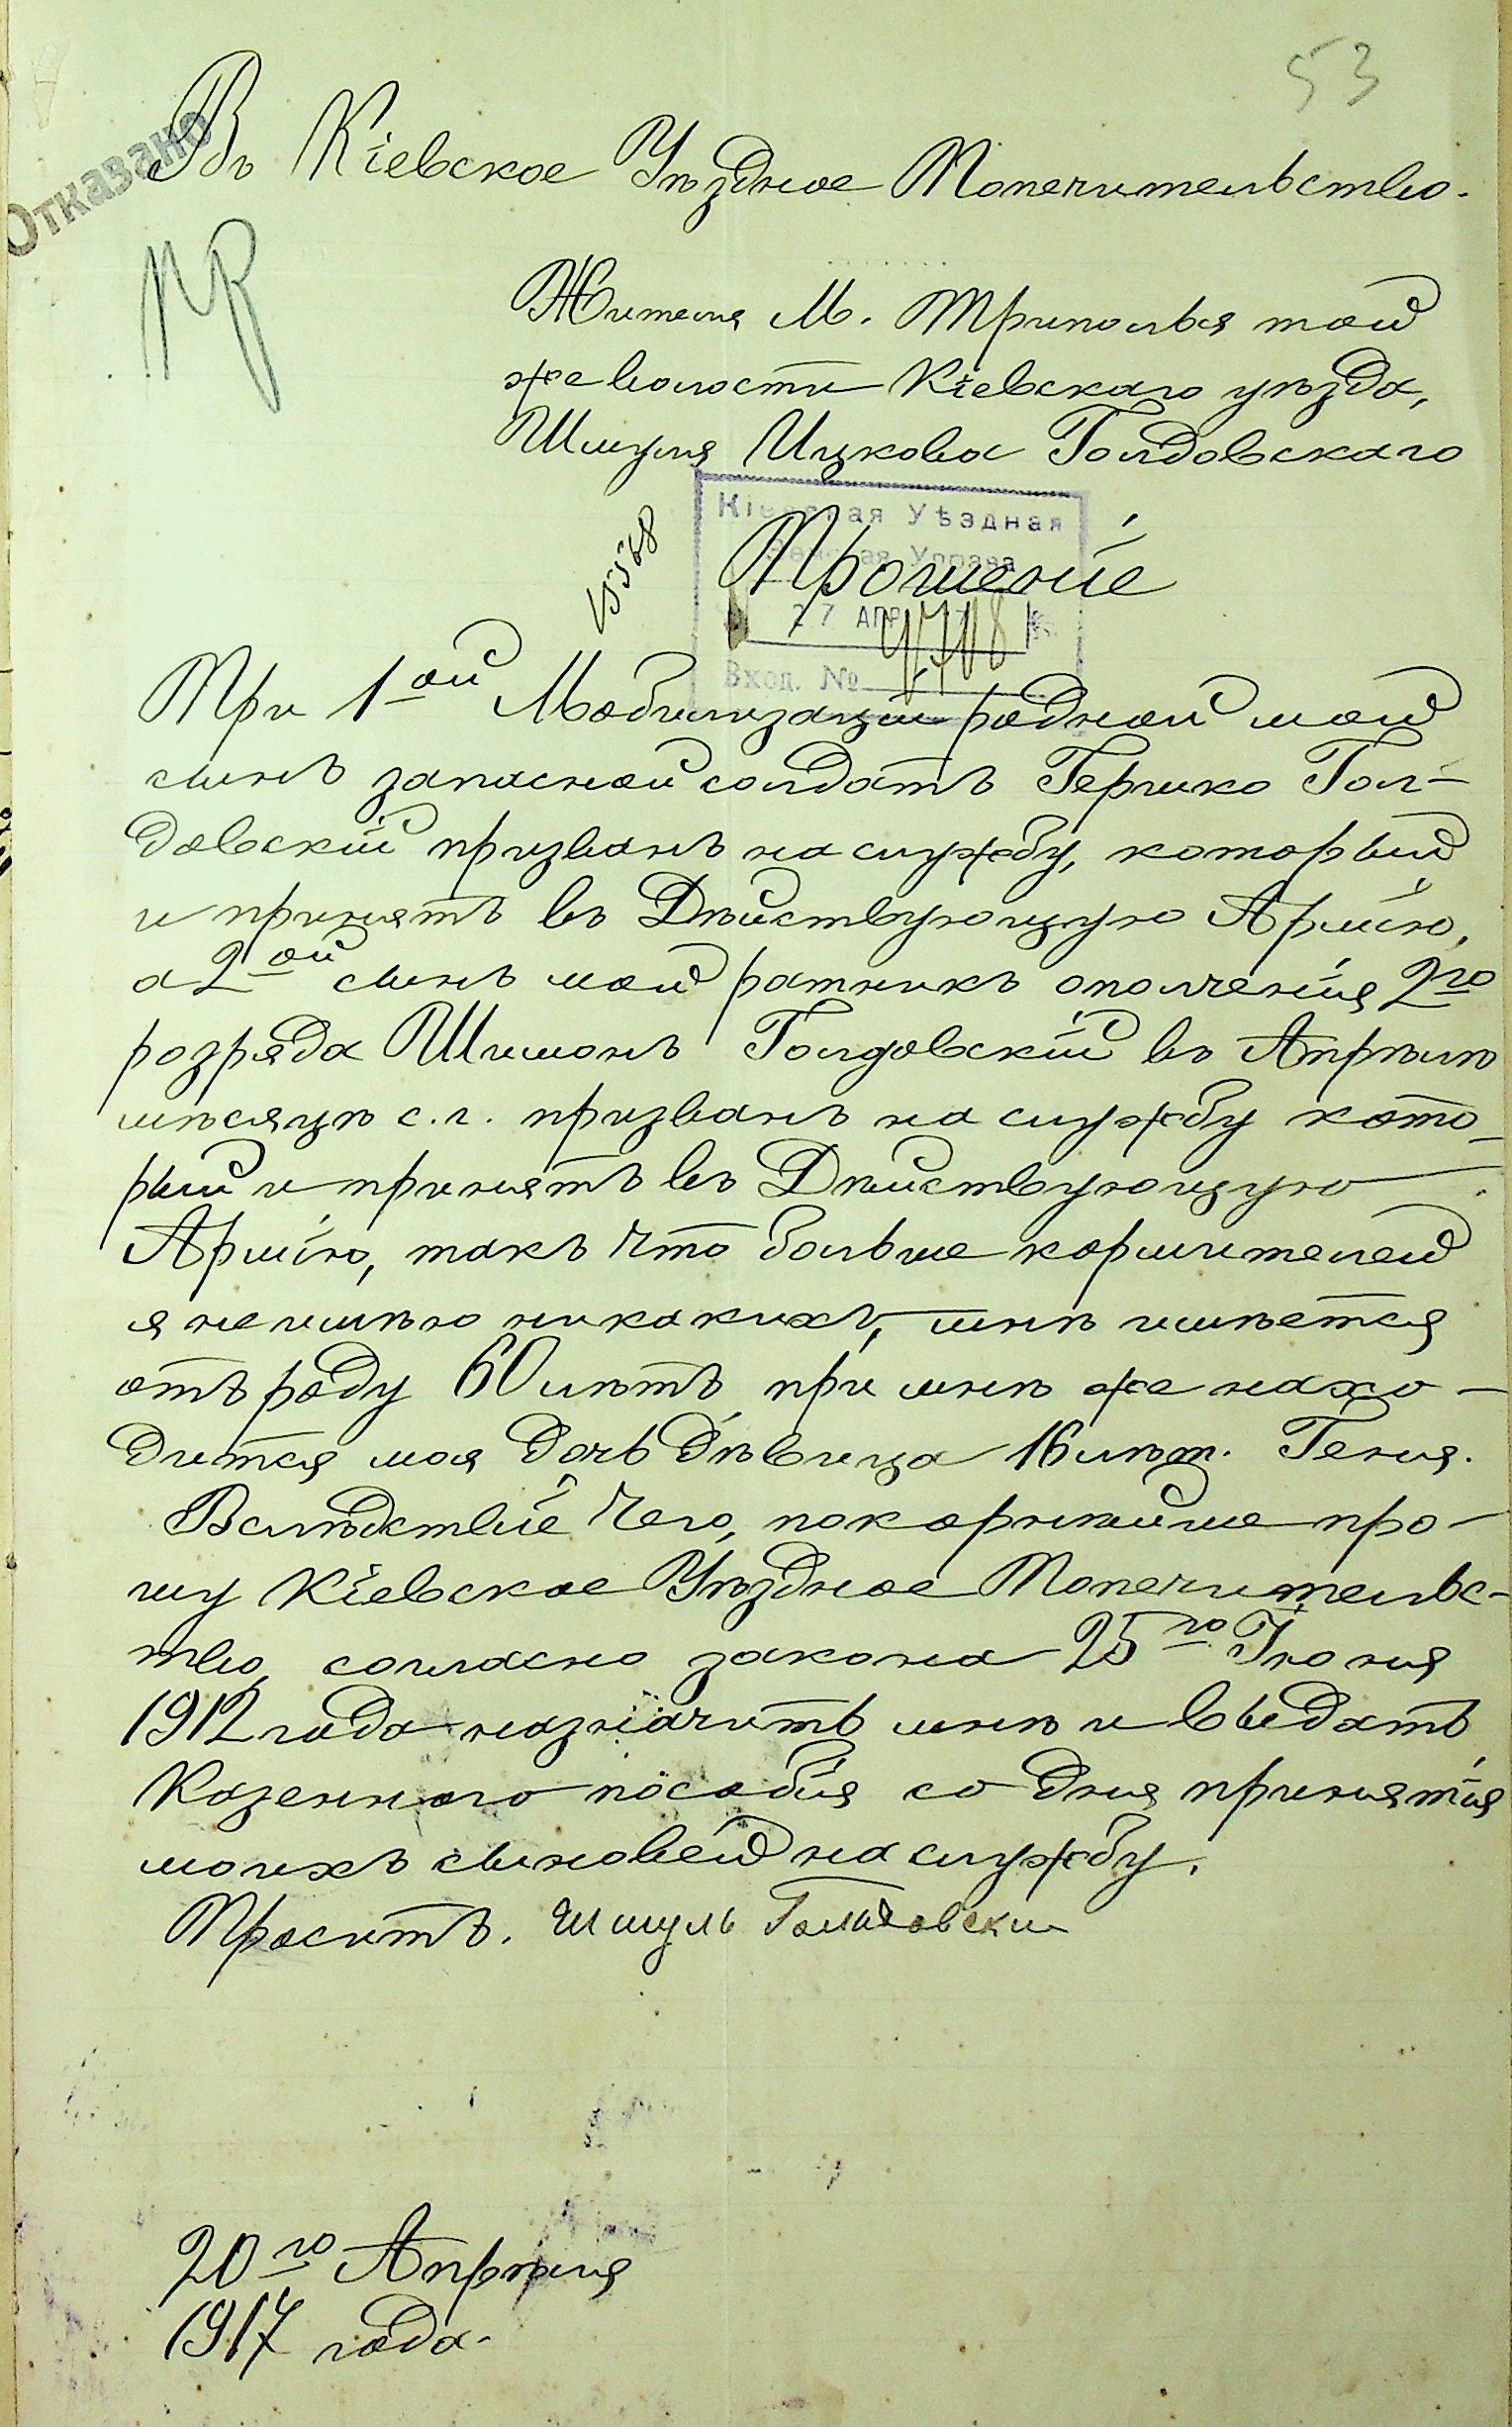 53
Отказано
Въ Кіевское Уѣздное Попечительство.
Жителя М. Триполья той
же волости Кіевскаго уѣзда,
Шмуля Ицкова Голдовскаго
15568
Кіевская Уѣздная
Земская Управа
27 АПР
Вход. №
Прошеніе
При 1ой Мобилизаціи родной мой
сынъ запасной солдатъ Гершко Гол-
довскій призванъ на службу, который
и принятъ въ Дѣйствующую Армію,
а 2ой сынъ мой ратникъ ополченія 2го
розряда Шимонъ Голдовскій въ Апрѣлѣ
мѣсяцѣ с.г. призванъ на службу кото-
рый и принятъ въ Дѣйствующую
Армію, такъ что больше кормителей
я не имѣю никакихъ, мнѣ имѣется
отъ роду 60 лѣтъ, при мнѣ же нахо-
дится моя дочь дѣвица 16 лѣт. Геня.
Вслѣдствіе чего, покорнѣйше про-
шу Кіевское Уѣздное Попечительс-
тво, согласно закона 25го Іюня
1912 года назначить мнѣ и выдать
Казенного пособія со дня принятія
моихъ сыновей на службу.
Проситъ. Шмуль Голдовский
20го Апрѣля
1917 года.